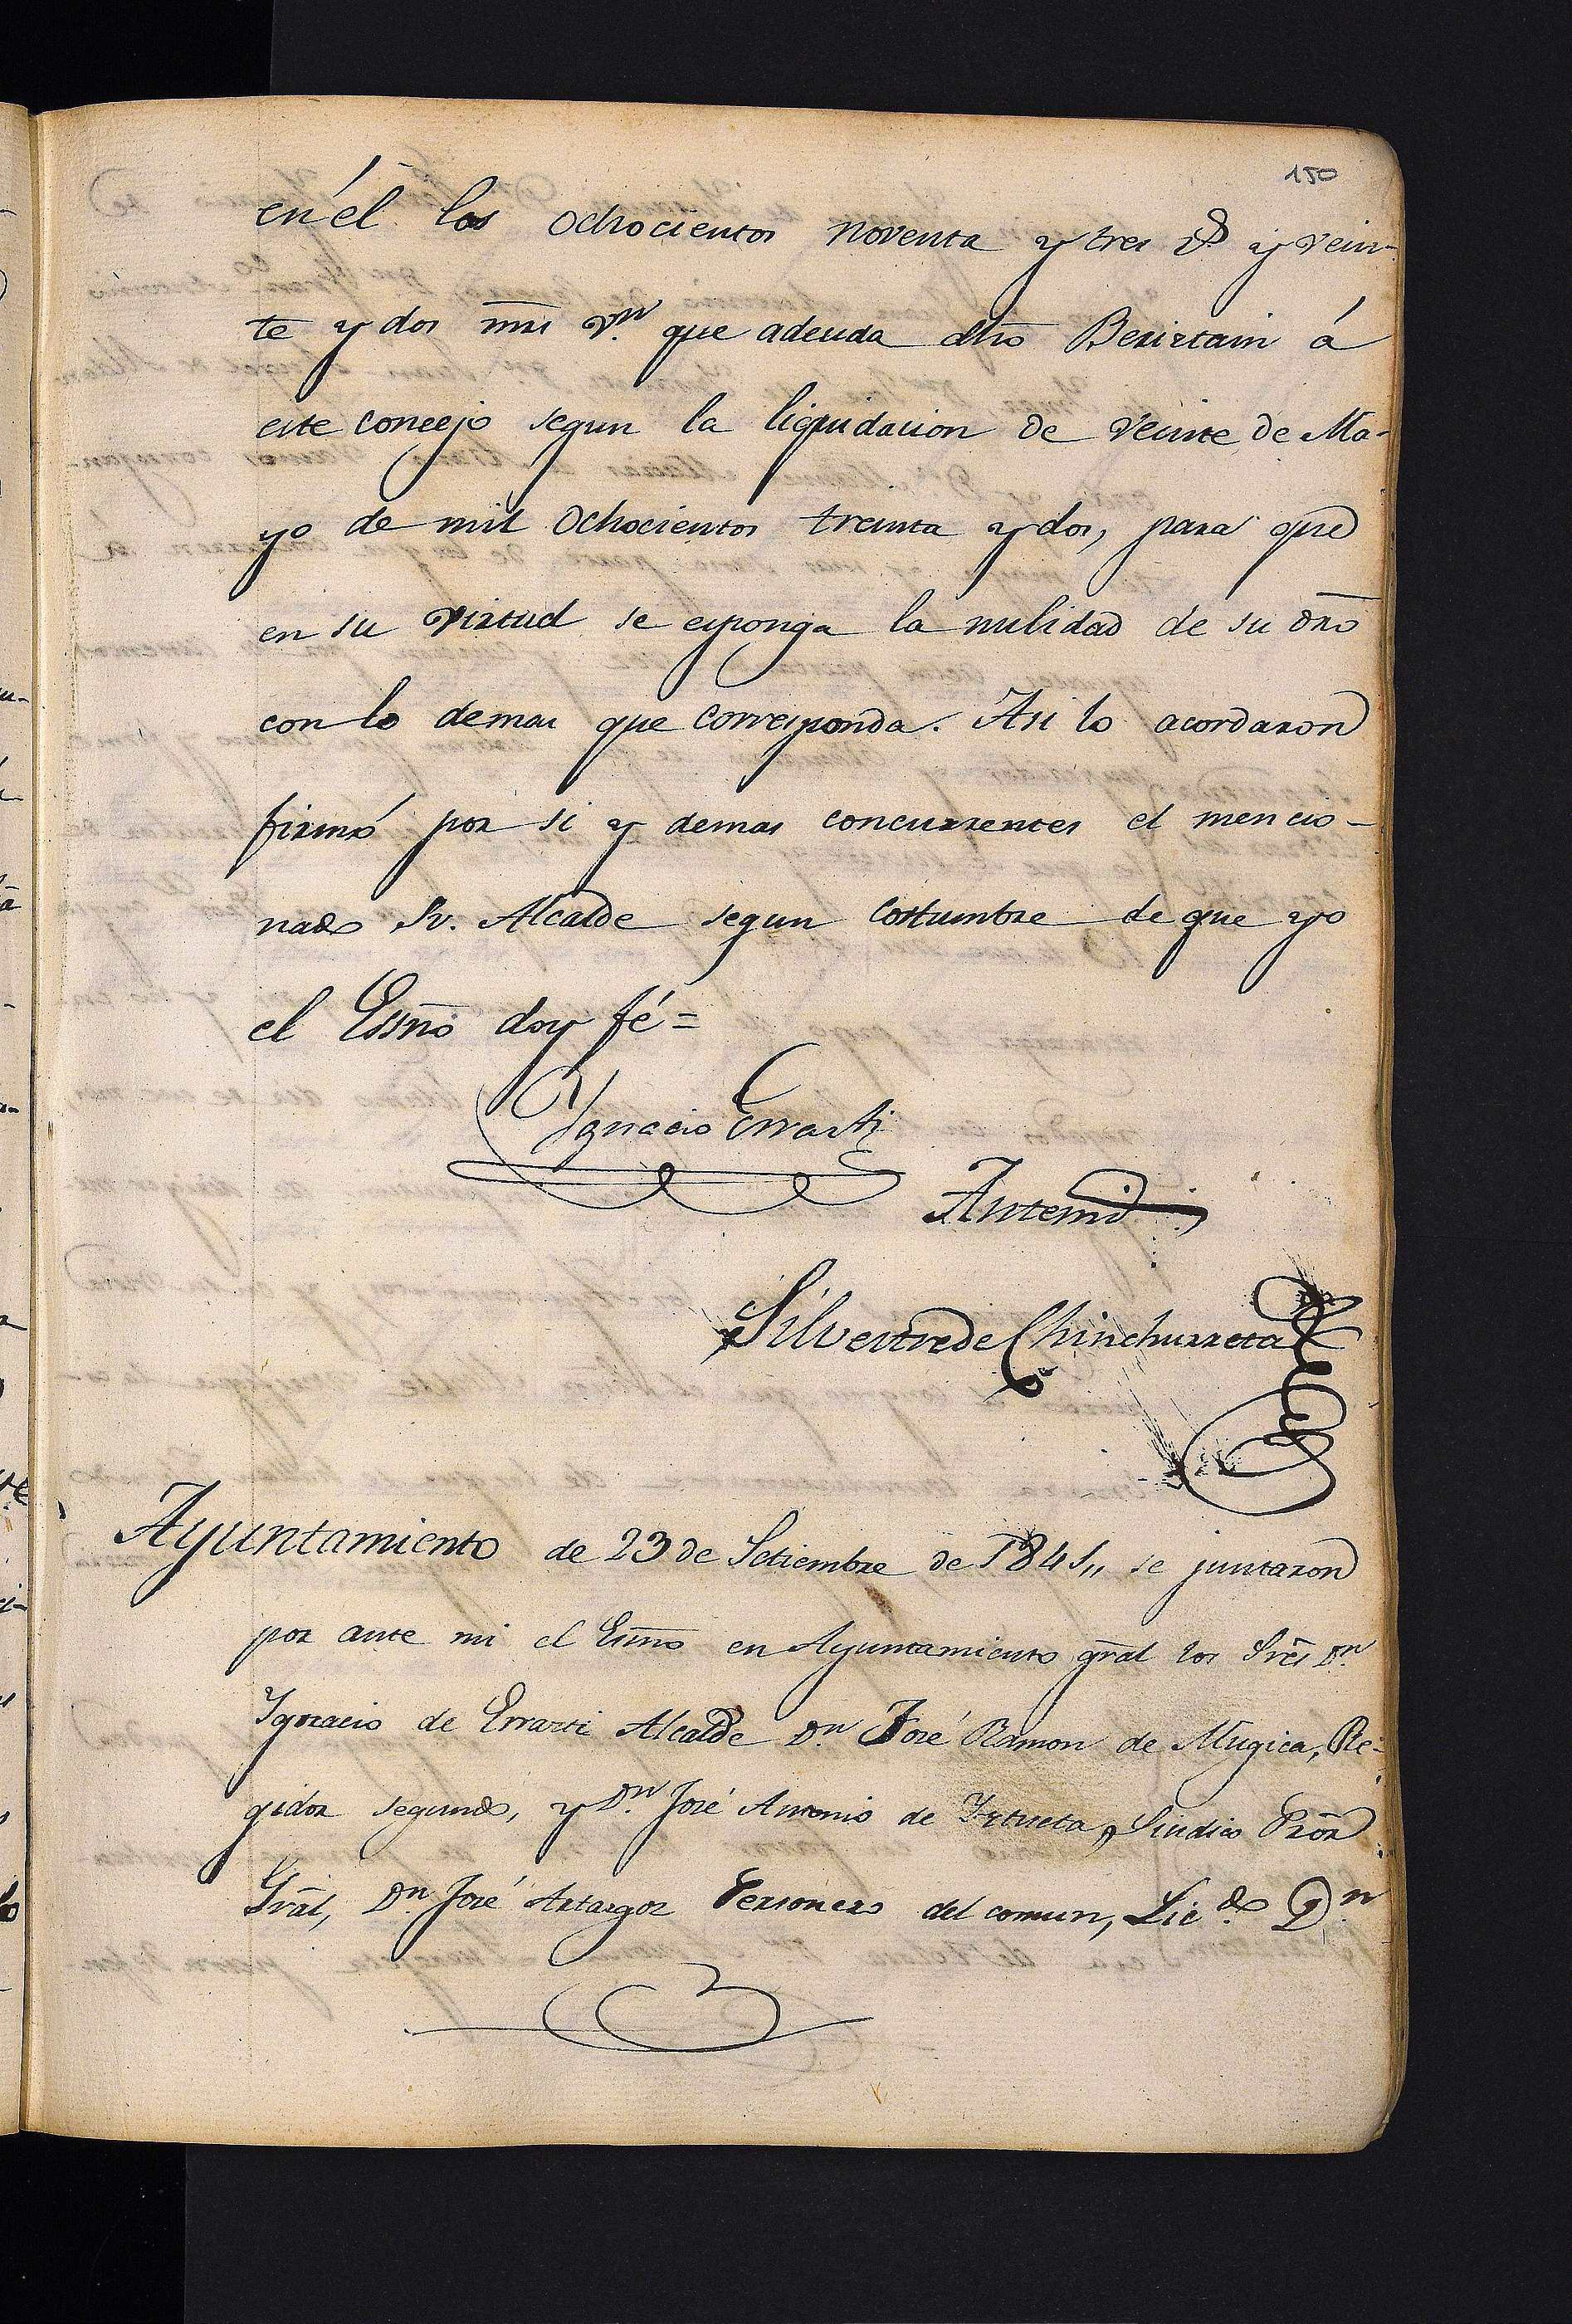 150
en él los ochocientos noventa y tres rs. y vein-
te y dos mrs. vn. que adeuda dho Beriztain á
este concejo segun la liquidacion de veinte de Ma-
yo de mil ochocientos treinta y dos, para que
en su virtud se esponga la nulidad de su dro
con lo demas que corresponda. Asi lo acordaron
firmó por si y demas concurrentes el mencio-
nado Sr. Alcalde segun costumbre de que yo
el Essno doy fé =
Ygnacio Errasti
Antemi
Silvestre de Chinchurreta
Ayuntamiento de 23 de Setiembre de 1841,, se juntaron
por ante mi el Essno en Ayuntamiento gral los Sres Dn.
Ygnacio de Errasti Alcalde Dn. José Ramon de Mugica, Re-
gidor segundo, y Dn. José Antonio de Yztueta, Sindico Pror
Gral, Dn. José Aztargoz Personero del comun, Licdo. Dn.